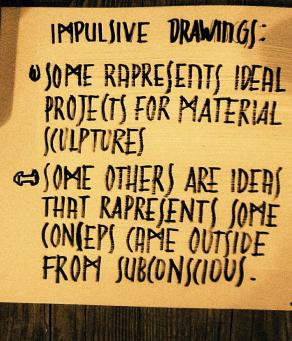 IMPULSIVE DRAWINGS:
SOME RAPRESENTS IDEAL
PROJECTS FOR MATERIAL
SCULPTURES
SOME OTHERS ARE IDEAS
THAT RAPRESENTS SOME
CONSEPS CAME OUTSIDE
FROM SUBCONSCIOUS.